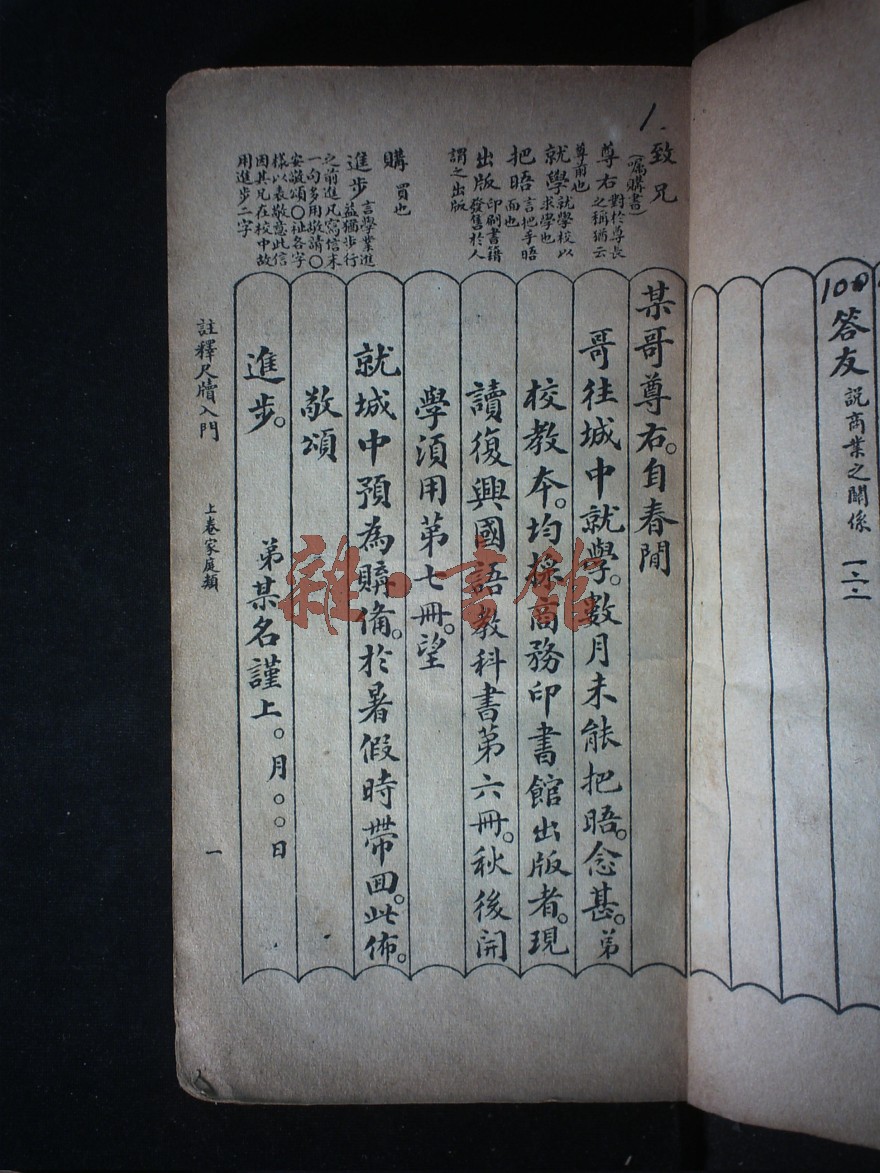 100
答友 説商業之關係 一二一
1.
致兄
(囑購書)
尊右 對於尊長
之稱猶云
尊前也
就學 就學校以
求學也
把晤 言把手晤
面也
出版 印刷書籍
發售於人
謂之出版
購 買也
進步 言學業進
益猶步行
之前進凡寫信末
一句多用敬請〇
安敬頌〇祉各字
樣以表敬意此信
因其兄在校中故
用進步二字
某哥尊右。自春間
哥往城中就學。數月未能把晤。念甚。弟
校教本。均採商務印書館出版者。現
讀復興國語教科書第六冊。秋後開
學須用第七冊。望
就城中預為購備。於暑假時帶回。此佈。
敬頌
進步。
弟某名謹上。〇月〇〇日
註釋尺牘入門 上卷家庭類 一
雜·書館